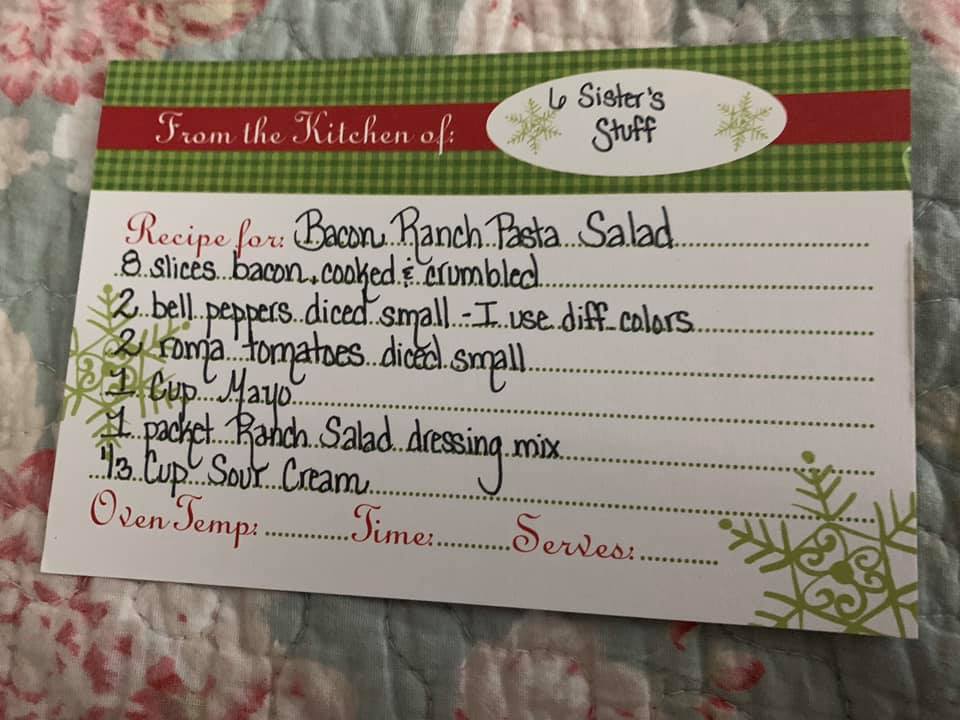 From the Kitchen of: 6 Sister's
Stuff
Recipe for: Bacon Ranch Pasta Salad
8 slices bacon, cooked & crumbled
2 bell peppers diced small - I use diff colors
2 roma tomatoes diced small
1 Cup Mayo
1 packet Ranch Salad dressing mix
1/3 Cup Sour Cream
Oven Temp: Time: Serves: